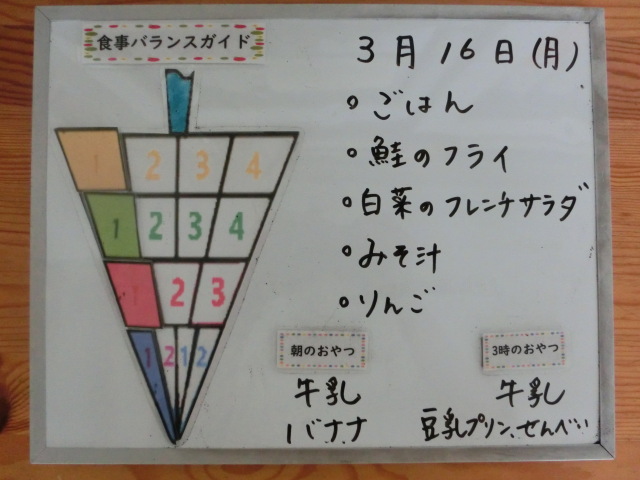 食事バランスガイド
3月16日(月)
ごはん
鮭のフライ
白菜のフレンチサラダ
みそ汁
りんご
1 2 3 4
1 2 3 4
1 2 3
1 2 1 2
朝のおやつ
牛乳
バナナ
3時のおやつ
牛乳
豆乳プリン、せんべい